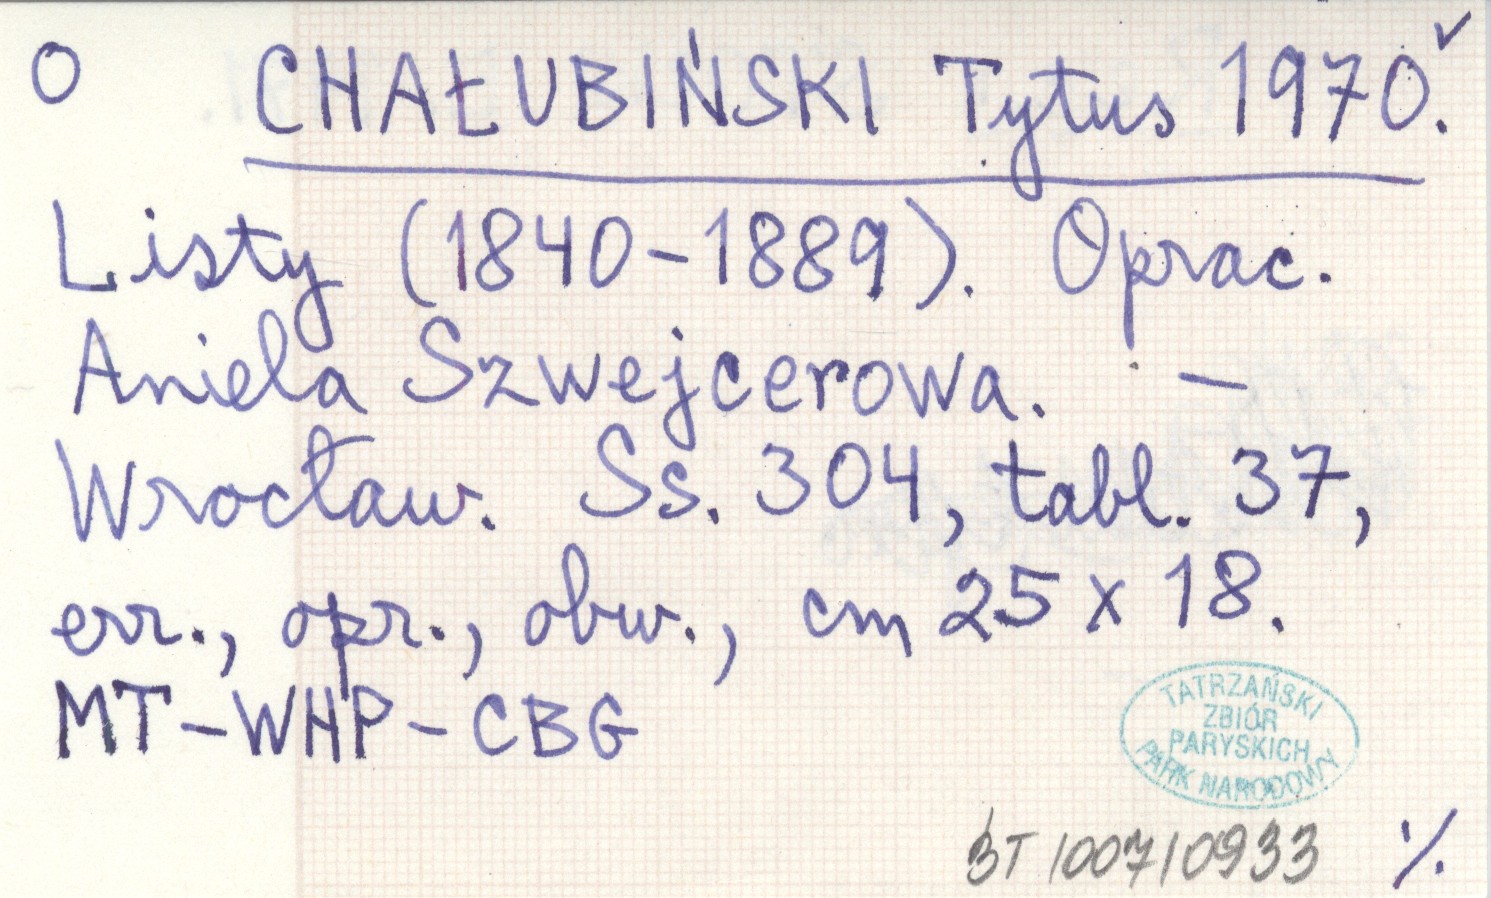 O CHAŁUBIŃSKI Tytus 1970.
Listy (1840-1889). Oprac.
Aniela Szwejcerowa. —
Wrocław. Ss. 304, tabl. 37,
err., opr., obw., cm 25 x 18.
MT-WHP-CBG
TATRZAŃSKI
ZBIÓR
PARYSKICH
PARK NARODOWY
BT/007/0933 ./.